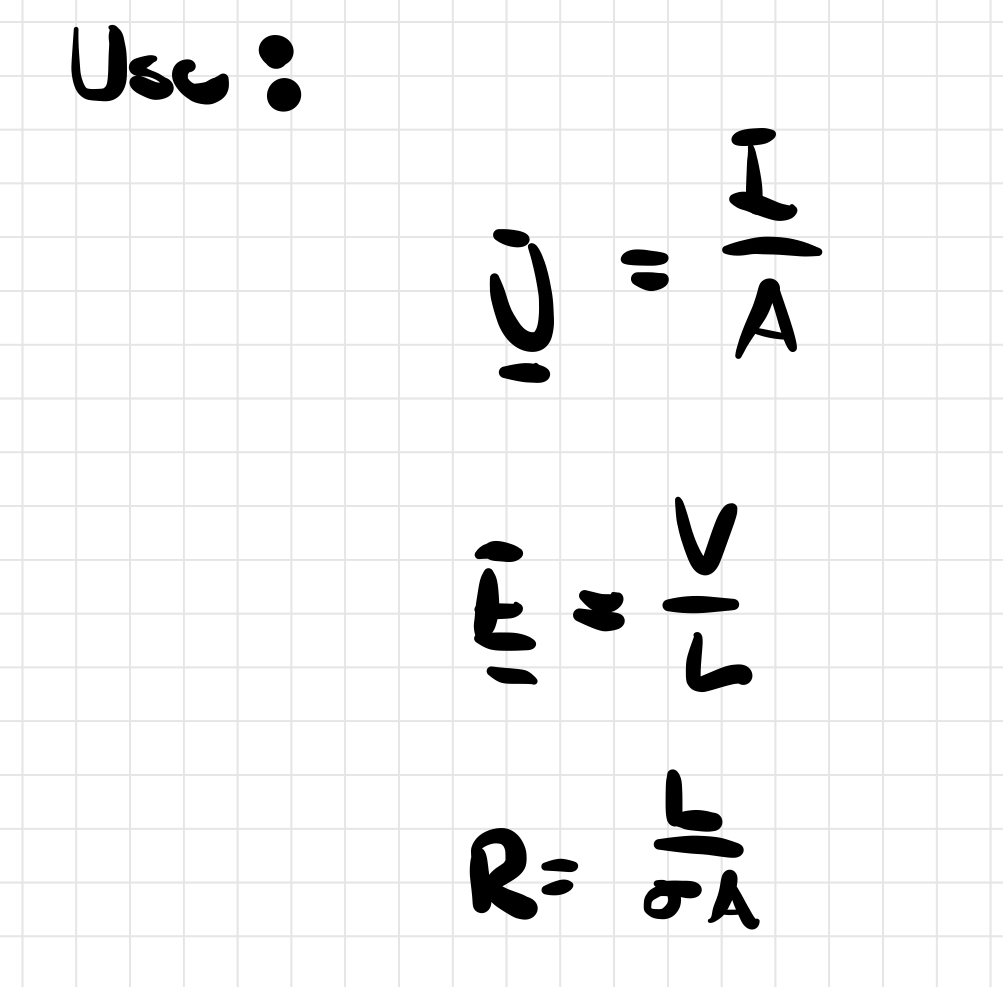 Use :
J = I / A
E = V / L
R = L / σA